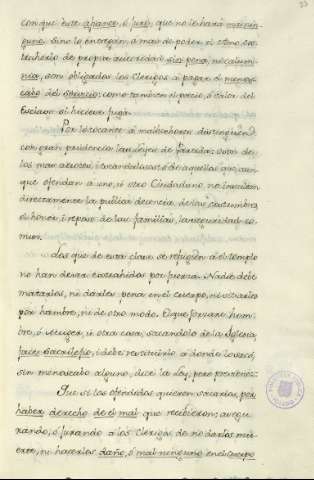 con que este afiance, ó jure, que no le hará mal ningu-
guno. Si no lo entregán, a mas de poder el Amo sa-
carlo de propia autoridad sin pena, ni calum-
nia, son obligados los Clerigos á pagar el menos-
cabo del servicio: como tambien el precio, ó valor del
Esclavo si hiciere fuga.
Por lo tocante á malhechores distinguen
con gran prudencia las Leyes de Partida: unos de
los mas atroces, i escandalosos: ó de aquellos que, aun
que ofendan a uno, ú otro Ciudadano, no insultan
directamente la publica decencia de las costumbres,
el honor, i reposo de las familias, la seguridad co-
mun.
Los que de esta clase se refugien á el templo
no han de ser extrahidos por fuerza. Nadie debe
matarlos, ni darles pena en el cuerpo, ni sitiarlos
por hambre, ni de otro modo. El que forzare hom-
bre, ó muger, ú otra cosa, sacandolo de la Iglesia,
face sacrilegio, i debe restituirlo a donde lo sacó,
sin menoscabo alguno, dice la Ley, pero previene:
Que si los ofendidos quieren sacarlos, por
haber derecho de el mal que recibieron; asegu-
rando, ó jurando a los Clerigos de no darles mu-
erte, ni hacerles daño, ó mal ninguno en el cuerpo